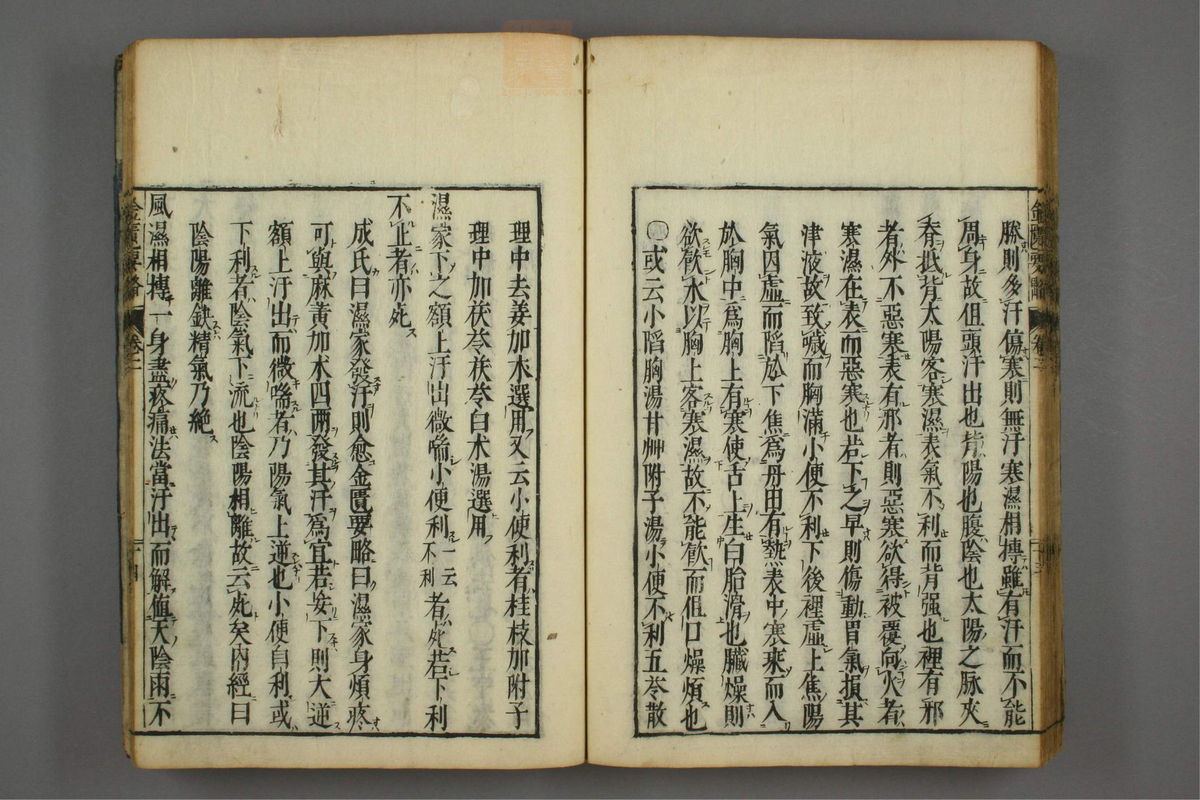 勝則多汗傷寒則無汗寒濕相搏雖有汗而不能
周身故但頭汗出也背陽也腹陰也太陽之脉夾
脊抵背太陽客寒濕表氣不利而背强也裡有邪
者外不惡寒表有邪者則惡寒欲得被覆向火者
寒濕在表而惡寒也若下之早則傷動胃氣損其
津液故致噦而胸滿小便不利下後裡虛上焦陽
氣因虛而陷於下焦爲丹田有熱表中寒乘而入
於胸中爲胸上有寒使舌上生白胎滑也臓燥則
欲飮水以胸上客寒濕故不能飮而但口燥煩也
或云小陷胸湯甘艸附子湯小便不利五苓散
理中去姜加朮選用又云小便利者桂枝加附子
理中加茯苓茯苓白朮湯選用
濕家下之額上汗出微喘小便利一云不利者死若下利
不止者亦死
成氏曰濕家發汗則愈金匱要略曰濕家身煩疼
可與麻黄加朮四兩發其汗爲宜若妄下則大逆
額上汗出而微喘者乃陽氣上逆也小便自利或
下利者陰氣下流也陰陽相離故云死矣内經曰
陰陽離鈌精氣乃絶
風濕相搏一身盡疼痛法當汗出而解値天陰雨不